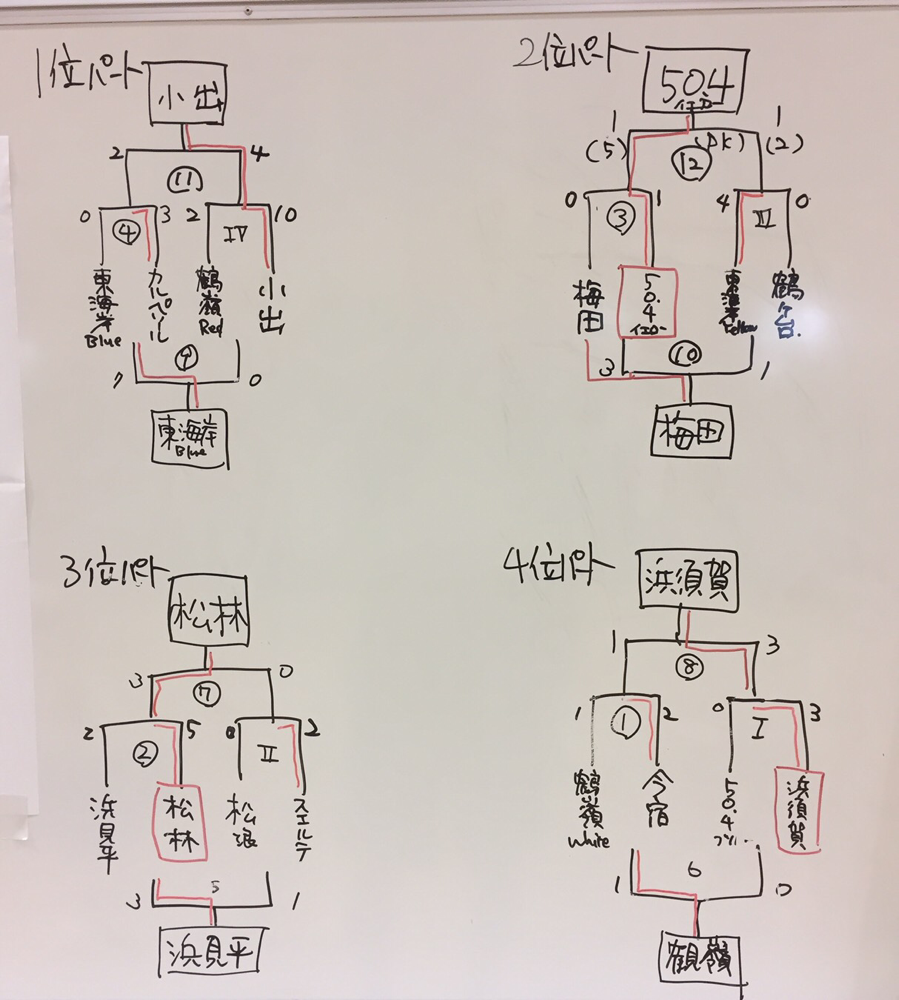 1位パート
小出
2
4
⑪
0
3
2
10
④
IV
東海岸
Blue
カルペソール
鶴嶺
Red
小出
⑨
7
0
東海岸
Blue
2位パート
50.4
イエロー
1
1
(5)
(PK)
(2)
⑫
0
1
4
0
③
梅田
50.4
イエロー
東海岸
Yellow
鶴ケ台
⑩
3
1
梅田
3位パート
松林
3
0
⑦
2
5
0
2
②
II
浜見平
松林
松浪
スエルテ
5
3
1
浜見平
4位パート
浜須賀
1
3
⑧
1
2
0
3
①
I
鶴嶺
White
今宿
50.4
浜須賀
6
1
0